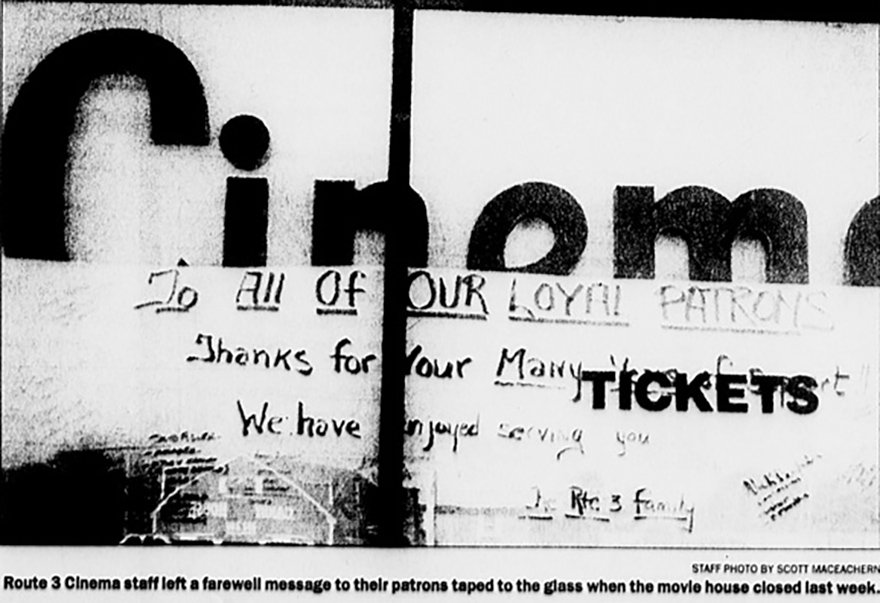 Cinema
To All Of OUR LOYAL PATRONS
Thanks for Your Many
TICKETS
We have enjoyed serving you
Rte 3 family
STAFF PHOTO BY SCOTT MACEACHERN
Route 3 Cinema staff left a farewell message to their patrons taped to the glass when the movie house closed last week.